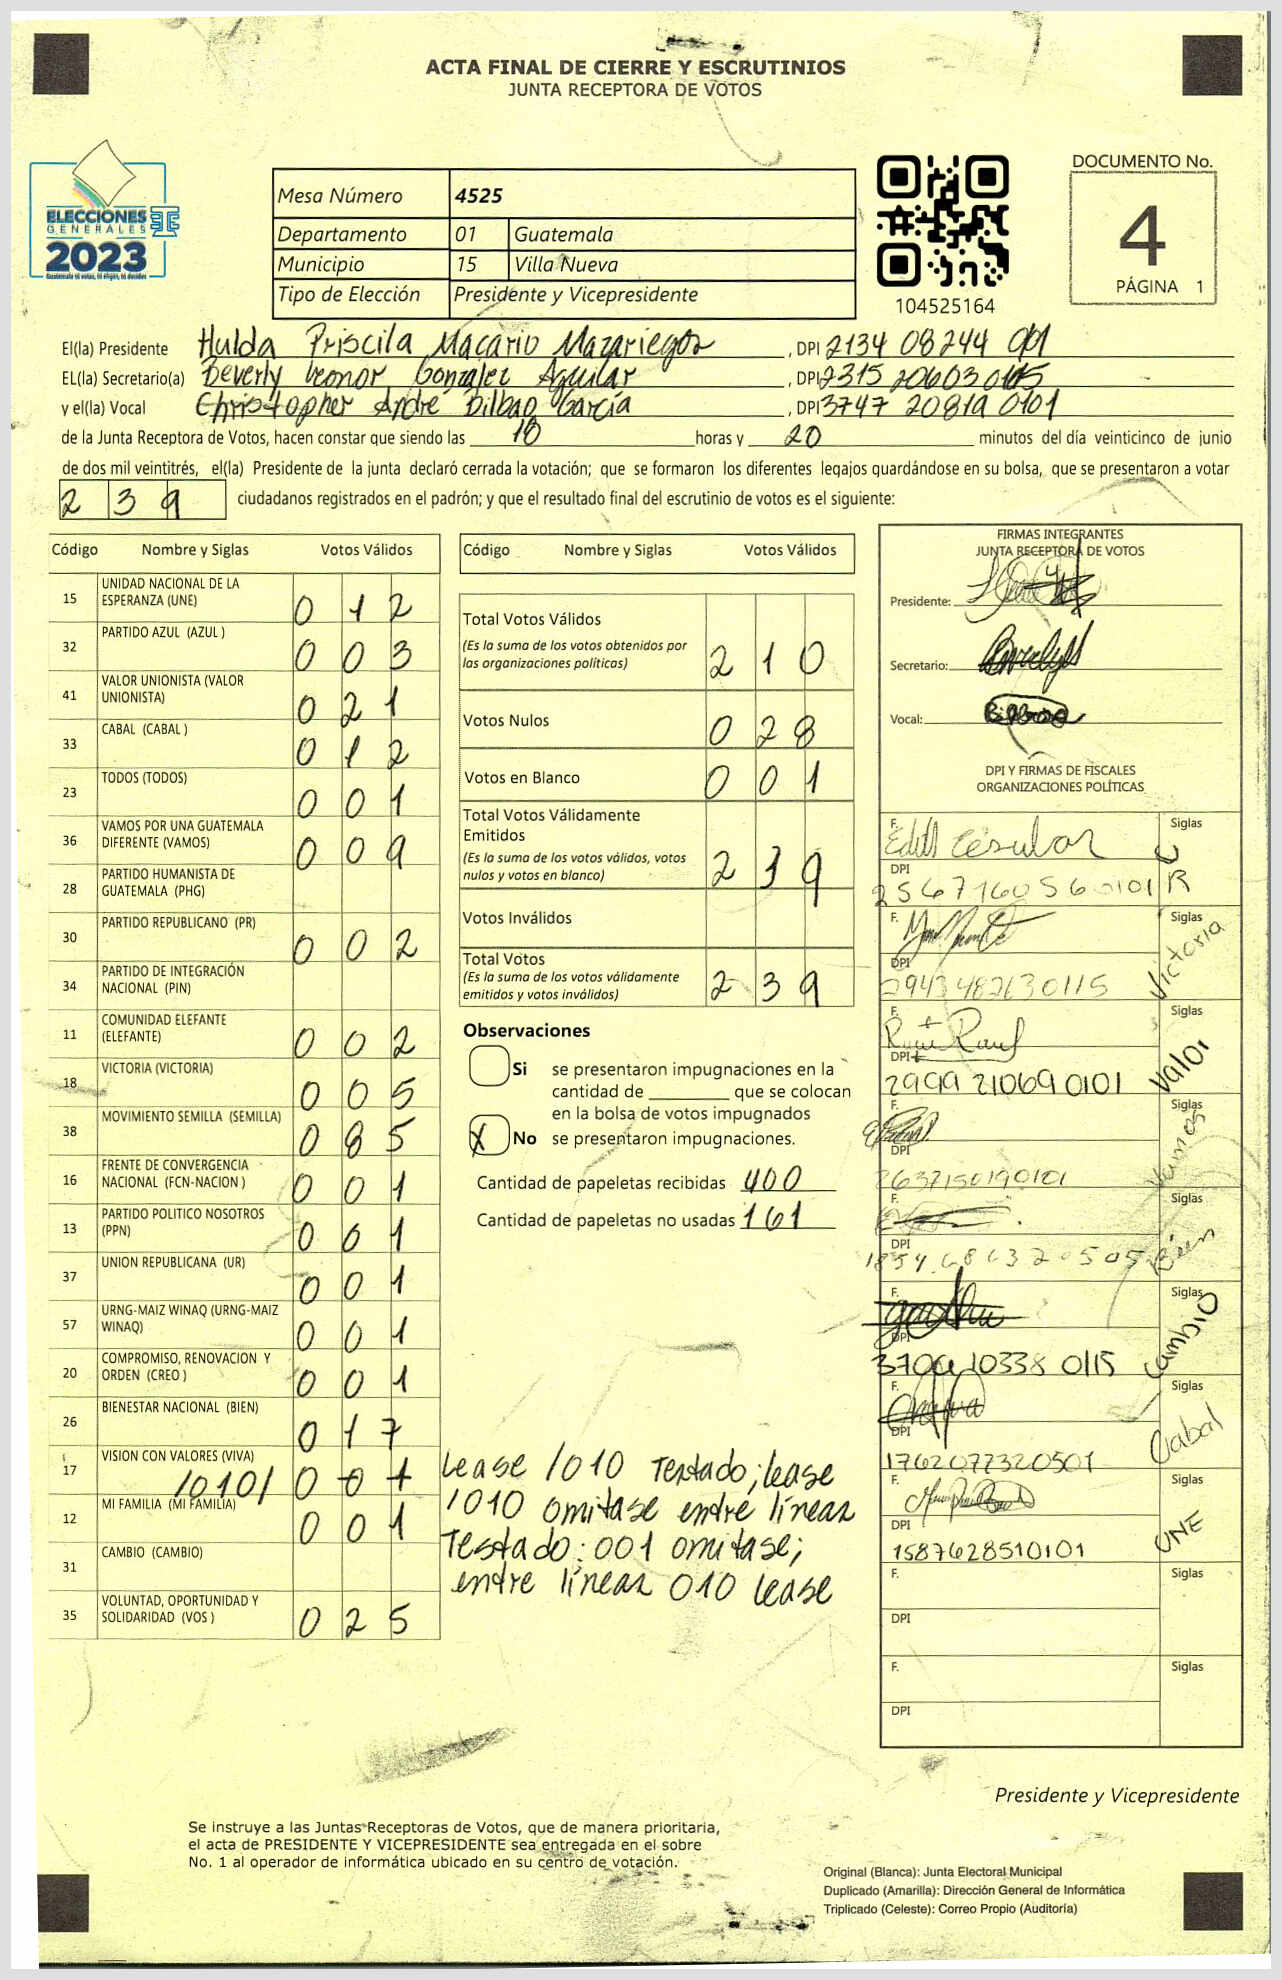 ACTA FINAL DE CIERRE Y ESCRUTINIOS
JUNTA RECEPTORA DE VOTOS
ELECCIONES
GENERALES
2023
Mesa Número 4525
Departamento 01 Guatemala
Municipio 15 Villa Nueva
Tipo de Elección Presidente y Vicepresidente
104525164
DOCUMENTO No.
4
PÁGINA 1
El(la) Presidente Hulda Priscila Macario Mazariegos, DPI 2134 08244
EL(la) Secretario(a) Beverly Leonor Gonzalez Aguilar, DPI 2315 20603
y el(la) Vocal Christopher André Bilbao García, DPI 3747 20819 0101
de la Junta Receptora de Votos, hacen constar que siendo las 18 horas y 20 minutos del día veinticinco de junio
de dos mil veintitrés, el(la) Presidente de la junta declaró cerrada la votación; que se formaron los diferentes legajos guardándose en su bolsa, que se presentaron a votar
239 ciudadanos registrados en el padrón; y que el resultado final del escrutinio de votos es el siguiente:
Código Nombre y Siglas Votos Válidos
15 UNIDAD NACIONAL DE LA ESPERANZA (UNE) 012
32 PARTIDO AZUL (AZUL ) 003
41 VALOR UNIONISTA (VALOR UNIONISTA) 021
33 CABAL (CABAL ) 012
23 TODOS (TODOS) 001
36 VAMOS POR UNA GUATEMALA DIFERENTE (VAMOS) 009
28 PARTIDO HUMANISTA DE GUATEMALA (PHG)
30 PARTIDO REPUBLICANO (PR) 002
34 PARTIDO DE INTEGRACIÓN NACIONAL (PIN)
11 COMUNIDAD ELEFANTE (ELEFANTE) 002
18 VICTORIA (VICTORIA) 005
38 MOVIMIENTO SEMILLA (SEMILLA) 085
16 FRENTE DE CONVERGENCIA NACIONAL (FCN-NACION ) 001
13 PARTIDO POLITICO NOSOTROS (PPN) 001
37 UNION REPUBLICANA (UR) 001
57 URNG-MAIZ WINAQ (URNG-MAIZ WINAQ) 001
20 COMPROMISO, RENOVACION Y ORDEN (CREO ) 001
26 BIENESTAR NACIONAL (BIEN) 017
17 VISION CON VALORES (VIVA) /010/ 001
12 MI FAMILIA (MI FAMILIA) 001
31 CAMBIO (CAMBIO)
35 VOLUNTAD, OPORTUNIDAD Y SOLIDARIDAD (VOS ) 025
Código Nombre y Siglas Votos Válidos
Total Votos Válidos 210
(Es la suma de los votos obtenidos por
las organizaciones políticas)
Votos Nulos 028
Votos en Blanco 001
Total Votos Válidamente
Emitidos 239
(Es la suma de los votos válidos, votos
nulos y votos en blanco)
Votos Inválidos
Total Votos 239
(Es la suma de los votos válidamente
emitidos y votos inválidos)
Observaciones
Si se presentaron impugnaciones en la
cantidad de ________ que se colocan
en la bolsa de votos impugnados
X No se presentaron impugnaciones.
Cantidad de papeletas recibidas 400
Cantidad de papeletas no usadas 161
Lease /010 Testado; lease
1010 omitase entre líneas
Testado: 001 omitase;
entre líneas 010 lease
FIRMAS INTEGRANTES
JUNTA RECEPTORA DE VOTOS
Presidente:
Secretario:
Vocal:
DPI Y FIRMAS DE FISCALES
ORGANIZACIONES POLÍTICAS
F. Siglas
DPI 2567160560101 CR
F. Siglas Victoria
DPI 2943482630115
F. Siglas Valor
DPI 2999 21069 0101
F. Siglas Vamos
DPI 2637150190101
F. Siglas Bien
DPI
F. Siglas Cambio
DPI
F. Siglas Cabal
DPI 1762077320501
F. Siglas UNE
DPI 1587628510101
F. Siglas
DPI
F. Siglas
DPI
Presidente y Vicepresidente
Se instruye a las Juntas Receptoras de Votos, que de manera prioritaria,
el acta de PRESIDENTE Y VICEPRESIDENTE sea entregada en el sobre
No. 1 al operador de informática ubicado en su centro de votación.
Original (Blanca): Junta Electoral Municipal
Duplicado (Amarilla): Dirección General de Informática
Triplicado (Celeste): Correo Propio (Auditoría)